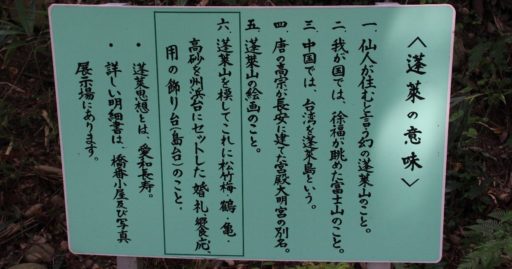 〈蓬莱の意味〉
一 仙人が住むと言う幻の蓬莱山のこと。
二 我が国では、徐福が眺めた富士山のこと。
三 中国では、台湾を蓬莱島という。
四 唐の高宗が長安に建てた宮殿大明宮の別名。
五 蓬莱山の絵画のこと。
六 蓬莱山を模してこれに松竹梅・鶴・亀・
高砂を州浜台にセットした婚礼・饗応、
用の飾り台(島台)のこと、
・蓬莱思想とは、愛和長寿。
・詳しい明細書は、橋番小屋及び写真
展示場にあります。